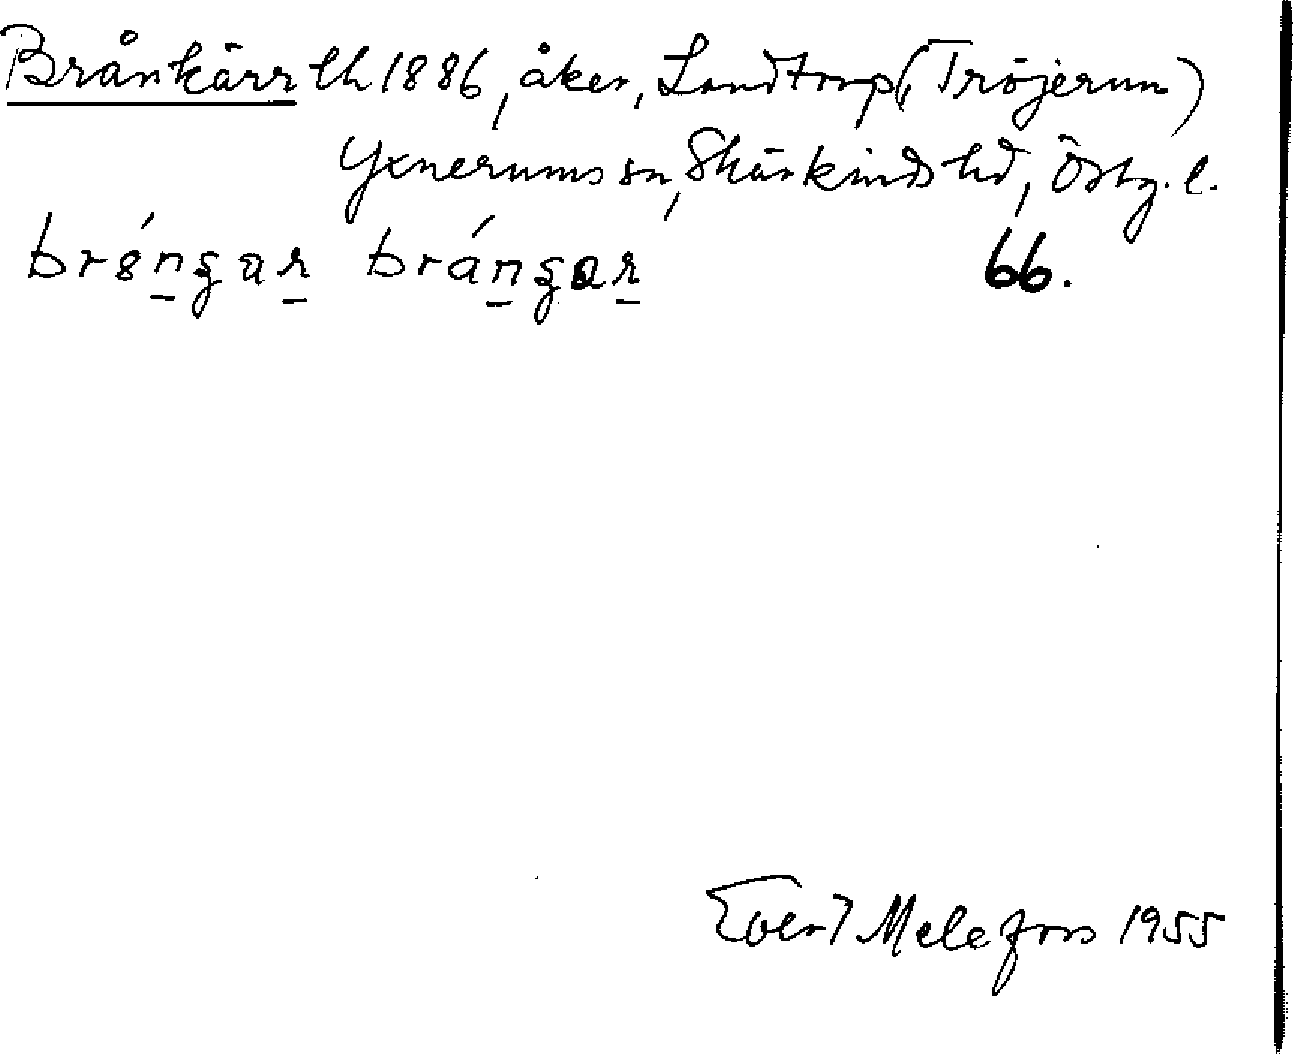 Brånkärr lh 1886, åker, Landtorp (Tröjerum)
Yxnerums sn, Skärkinds hd, Östg. l.
66.
Evert Melefors 1955